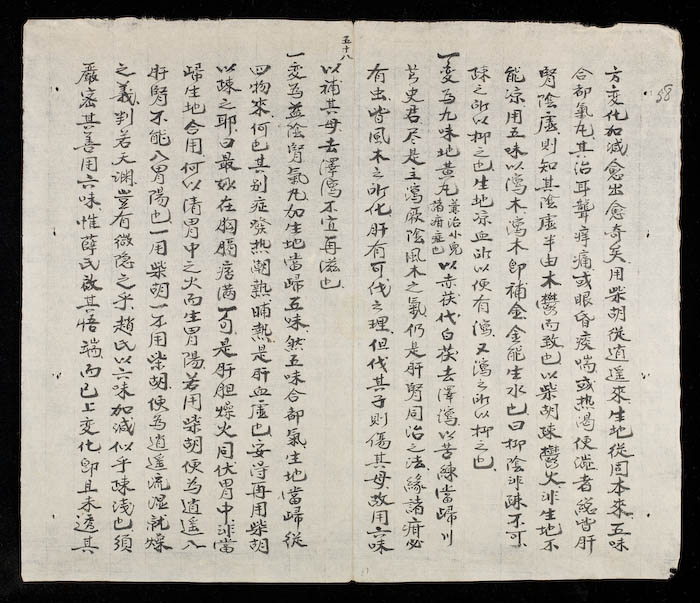 58
方變化加減愈出愈奇矣用柴胡從逍遥來生地從固本來五味
合都氣丸其治耳聾痒痛或眼昏痰喘或热渴便澁者總皆肝
腎陰虚則知其陰虚半由木鬱而致也以柴胡疎鬱火非生地不
能凉用五味以瀉木瀉木即補金金能生水也曰抑陰非疎不可
疎之所以抑之也生地凉血所以便有瀉又瀉之所以抑之也
一變為九味地黄丸兼治小兒諸疳症也以赤茯代白茯去澤瀉以苦練當歸川
芎史君尽是主瀉厥陰風木之氣仍是肝腎同治之法緣諸疳必
有虫皆風木之所化肝有可伐之理但伐其子則傷其母故用六味
五十八
以補其母去澤瀉不宜再滋也
一變為益陰腎氣丸加生地當歸五味然五味合都氣生地當歸從
四物來何也其别症發热潮熱晡熱是肝血虚也安得再用柴胡
以疎之耶曰最妙在胸膈痞满一句是肝胆燥火同伏胃中非當
歸生地合用何以清胃中之火而生胃陽若用柴胡便為逍遥入
肝腎不能入胃陽也一用柴胡一不用柴胡便為逍遥流湿就燥
之義判若天渊豈有微隐之乎趙氏以六味加減似乎疎浅也須
嚴密其善用六味惟薛氏啟其悟端而已上變化即且未透其